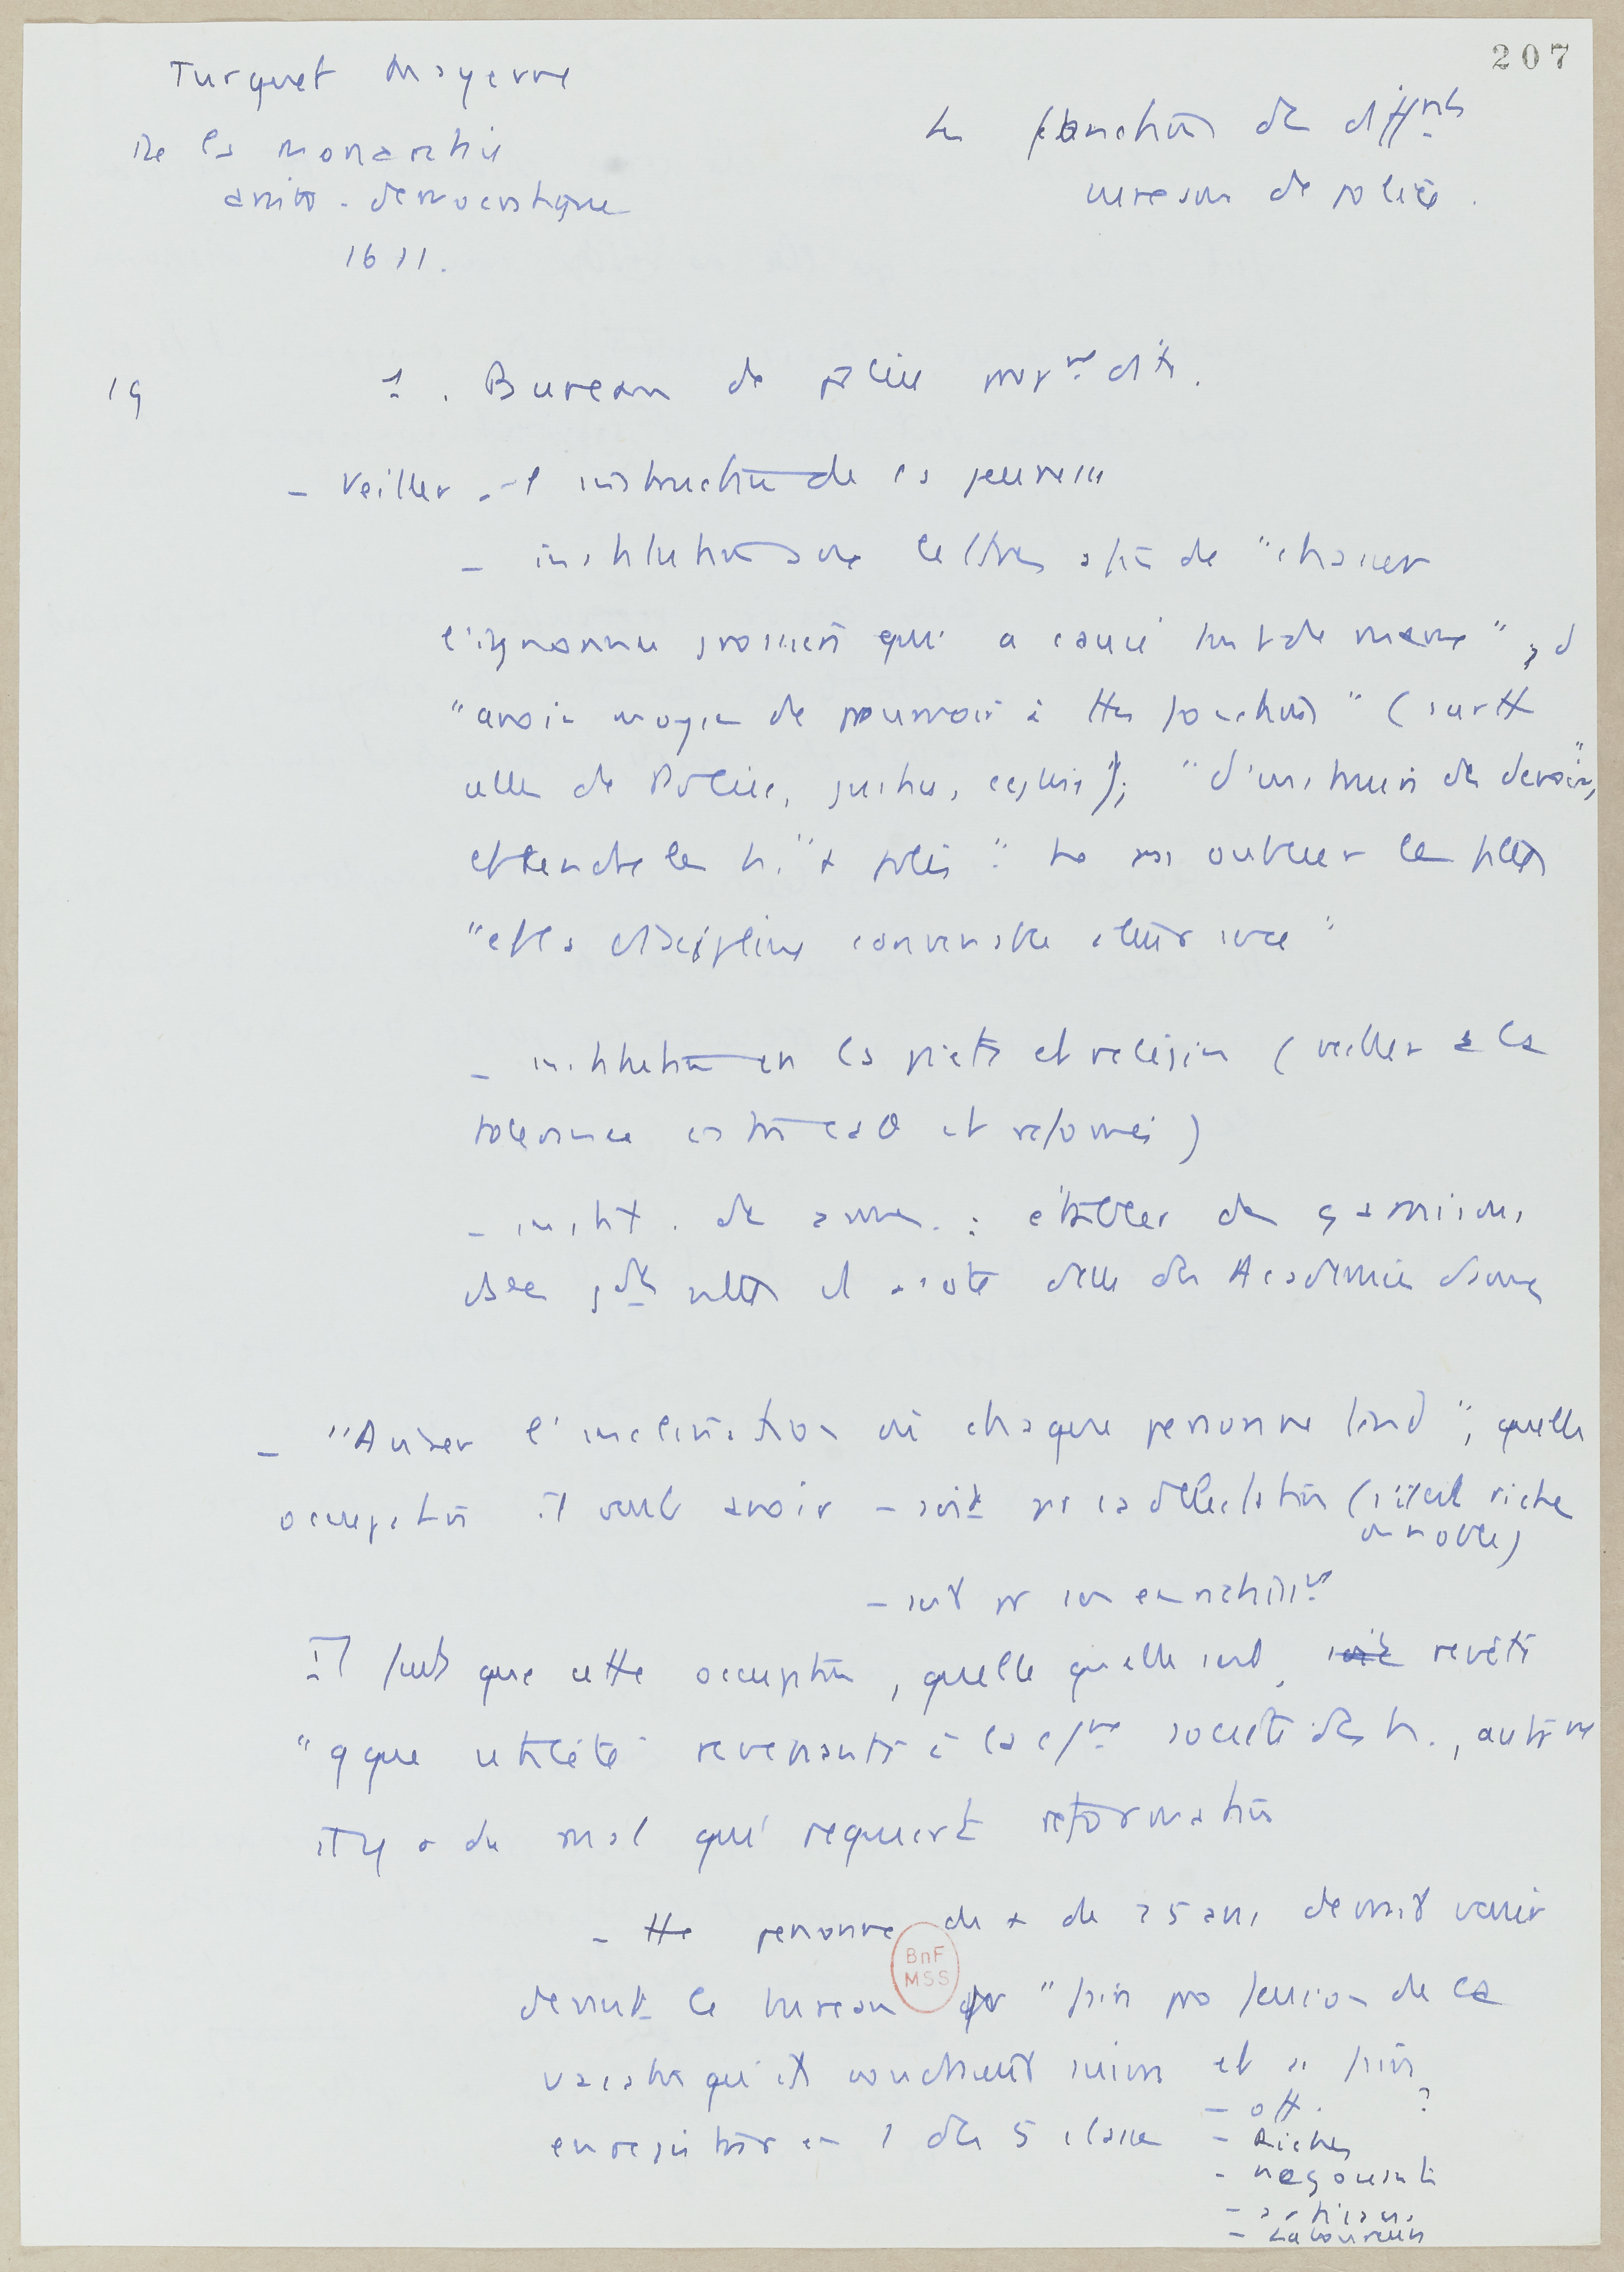 207
Turquet Mayerne
De la monarchie
aristo-democratique
1611.
les fonctions des diffnts
bureaux de police.
19
1. Bureau de police propremt dit.
- Veiller à l'instruction de la jeunesse
- institution aux lettres afin de "chasser
l'ignorance grossière qui a causé tant de maux", d'
"avoir moyen de pourvoir à ttes fonctions" (surtt
celles de Police, justice, ); "d'instruire des devoirs,"
et rendre les h. "+ polis". ne pas oublier les filles
"et la discipline convenable à leur sexe"
- institution en la piété et religion (veiller à la
tolérance entre cath et réformés)
- instit. des armes : établer des garnisons
ds les gdes villes et à côté d'elles des Académies d'armes
- "Aviser l'inclination où chaque personne tend"; quelle
occupation il veut avoir - soit pr sa délectation (s'il est riche
ou noble)
- soit pr son enrichissmt
Il faut que cette occupation, quelle qu'elle soit, revête
"qque utilité" revenante à la société des h., autrmt
il y a du mal qui requiert reformation
- tte personne de + de 25 ans devrait venir
devant le bureau pr "faire profession de la
vacation qu'il voudrait suivre et se faire
enregistrer en 1 des 5 classes
- off. ?
- Riches
- negociants
- artisans
- Laboureurs
BnF
MSS